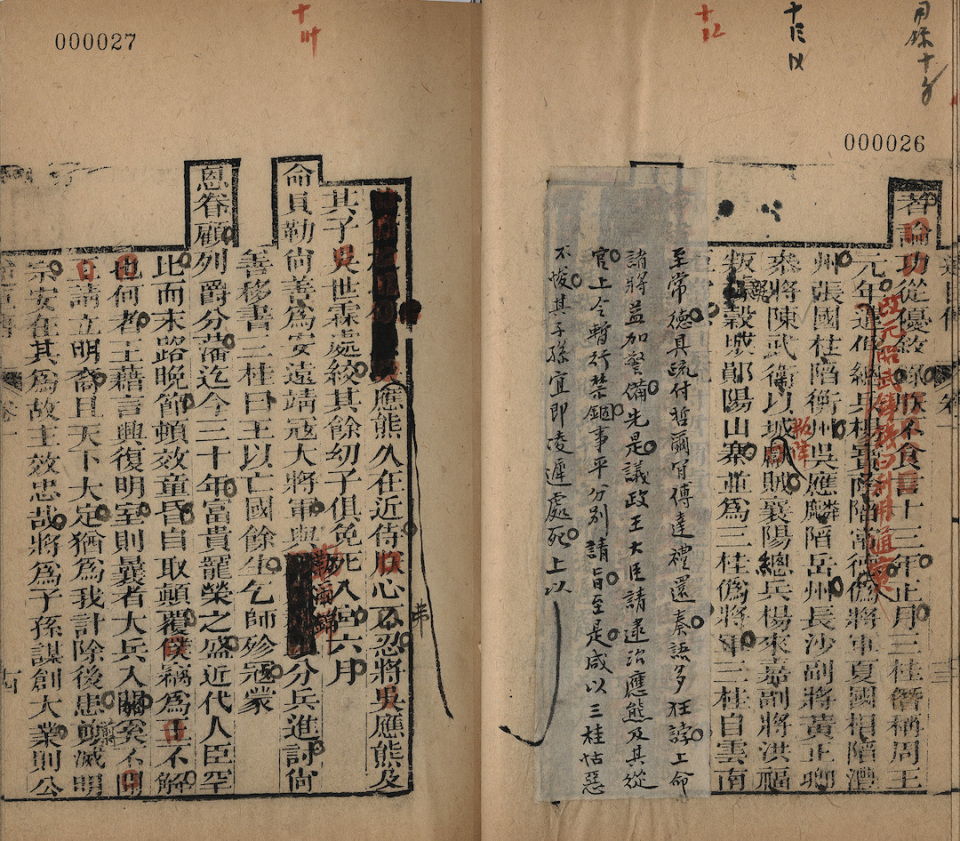 000026
若論功從優敘錄朕不食言十三年正月三桂僭稱周王
改元昭武鑄錢曰利用通寶
州張國柱陷衡州吳應麟陷岳州長沙副將黃正卿
參將陳武衡以城獻賊襄陽總兵楊來嘉副將洪福
叛穀城鄖陽山寨並為三桂偽將軍三桂自雲南
至常德具疏付哲爾肯傅達禮還奏語多狂誖上命
諸將益加警備先是議政王大臣請逮治應熊及其從
官上令暫行禁錮事平分別請旨至是咸以三桂怙惡
不悛其子孫宜即凌遲處死上以
000027
應熊久在近侍朕心不忍將吳應熊及
其子吳世霖處絞其餘幼子俱免死入宮六月
命貝勒尚善為安遠靖寇大將軍與分兵進討尚
善移書三桂曰王以亡國餘生乞師殄寇蒙
恩眷顧列爵分藩迄今三十年富貴寵榮之盛近代人臣罕
比而末路晚節頓效童昏自取顛覆僕竊為王不解
也何者王藉言興復明室則曩者大兵入關奚不聞
請立明裔且天下大定猶為我計除後患翦滅明
宗安在其為故主效忠哉將為子孫謀創大業則公